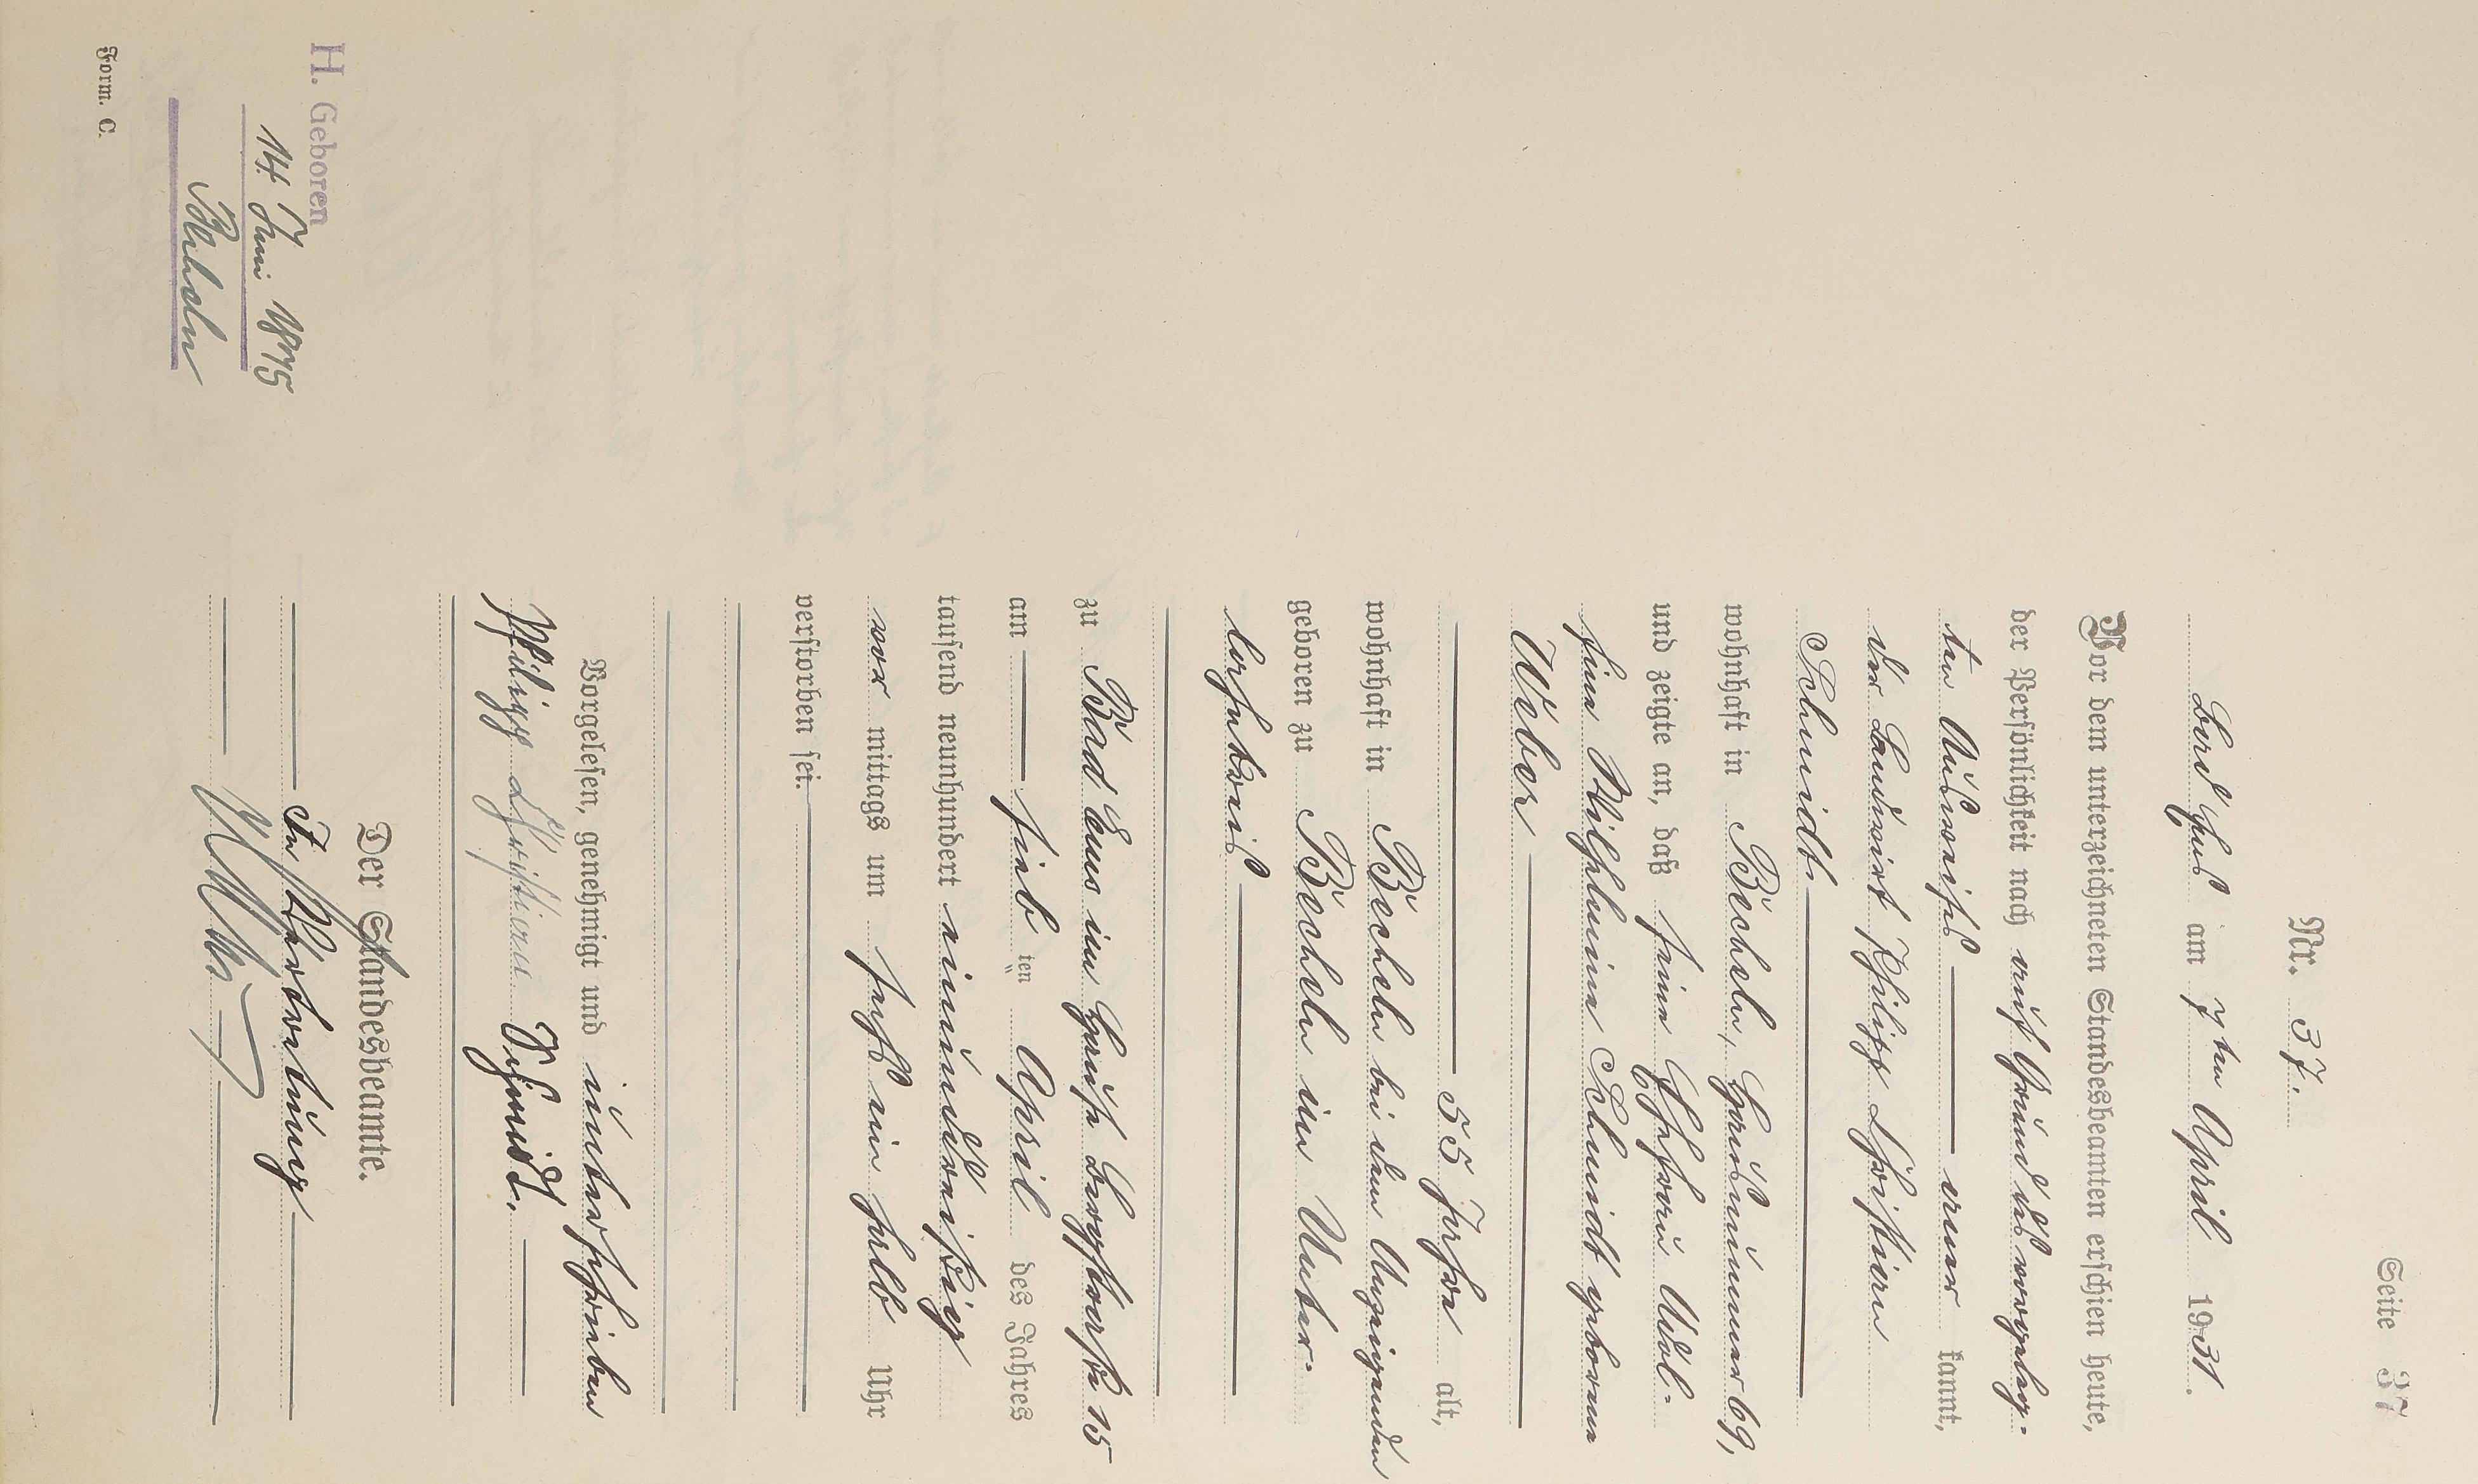 Seite 37
Nr. 37.
Bad Ems am 7ten April 1931.
Vor dem unterzeichneten Standesbeamten erschien heute,
der Persönlichkeit nach auf Grund des vorgeleg-
ten Ausweises aner kannt,
der Landwirt Philipp Christian
Schmidt
wohnhaft in Becheln, Hausnummer 69,
und zeigte an, daß seine Ehefrau Adol-
fine Wilhelmine Schmidt geborene
Weber
55 Jahre alt,
wohnhaft in Becheln bei dem Anzeigenden
geboren zu Becheln im Unter-
lahnkreis
zu Bad Ems im Hause 15
am sieb ten April des Jahres
tausend neunhundert einunddreißig
vor mittags um fünf ein halb Uhr
verstorben sei.
Vorgelesen, genehmigt und unterschrieben
Philipp Christian Schmidt.
Der Standesbeamte.
In Vertretung
H. Geboren
14. Juni 1875
Becheln
Form. C.